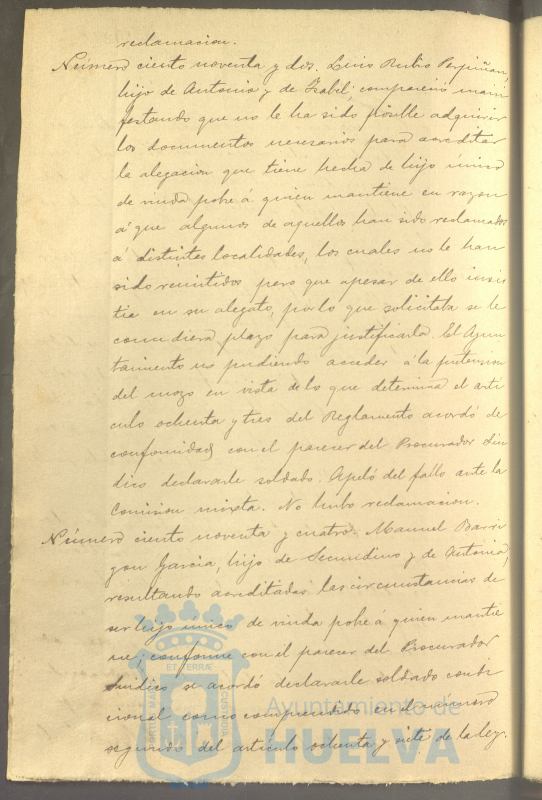 reclamacion.
Número ciento noventa y dos. Luis Rubio Perpiñan,
hijo de Antonio y de Isabel; compareció mani
festando que no le ha sido posible adquirir
los documentos necesarios para acreditar
la alegacion que tiene hecha de hijo único
de viuda pobre á quien mantiene en razon
á que algunos de aquellos han sido reclamados
á distintas localidades, los cuales no le han
sido remitidos, pero que apesar de ello insis
tia en su alegato, por lo que solicitaba se le
concediera plazo para justificarla. El Ayun
tamiento no pudiendo acceder á la pretension
del mozo en vista de lo que determina el arti
culo ochenta y tres del Reglamento acordó de
conformidad con el parecer del Procurador Sín
dico declararle soldado. Apeló del fallo ante la
Comision mixta. No hubo reclamacion.
Número ciento noventa y cuatro. Manuel Barri
gon Garcia, hijo de Secundino y de Antonia,
resultando acreditadas las circunstancias de
ser hijo unico de viuda pobre á quien mantie
ne; conforme con el parecer del Procurador
Sindico se acordó declararle soldado condi
cional como comprendido en el número
segundo del artículo ochenta y siete de la ley.
Ayuntamiento de
HUELVA